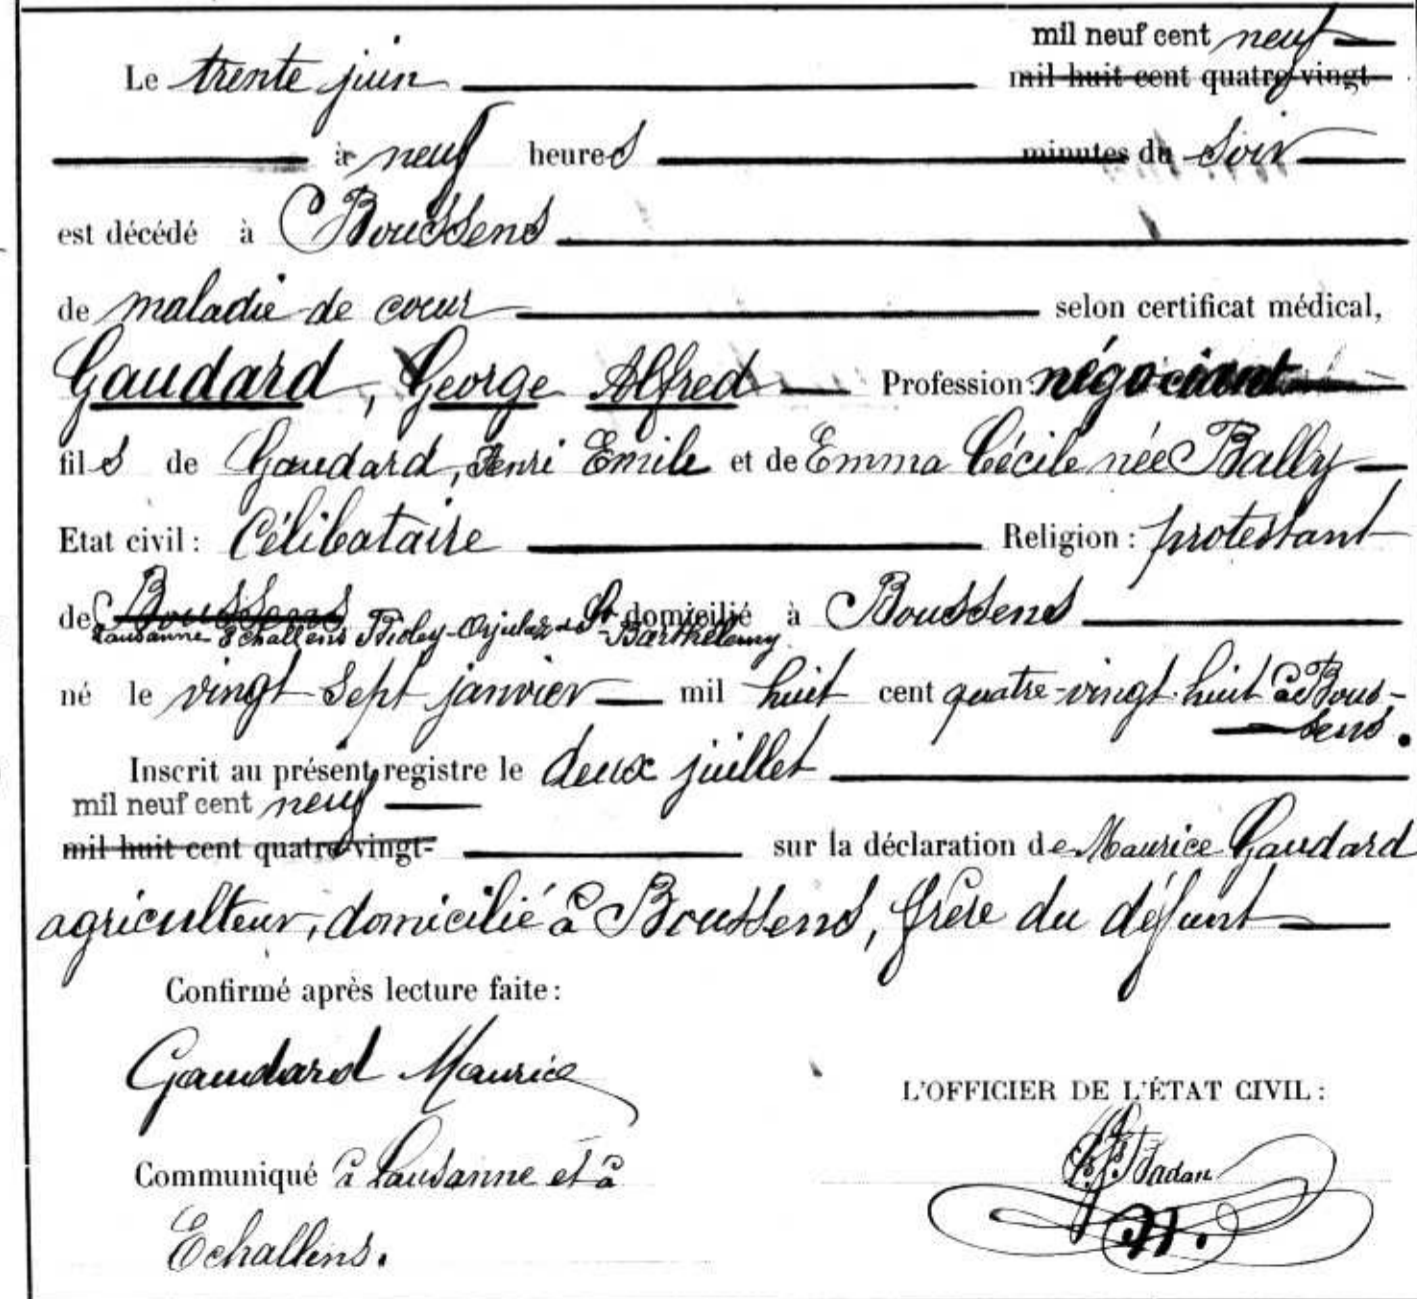 mil neuf cent neuf
Le trente juin mil huit cent quatre vingt
à neuf heures minutes du soir
est décédé à Boussens
de maladie de coeur selon certificat médical,
Gaudard, George Alfred Profession: négociant
fils de Gaudard, Henri Emile et de Emma Cécile née Bally
Etat civil: Célibataire Religion: protestant
de Boussens domicilié à Boussens
Lausanne Echallens Bioley-Orjulaz & St-Barthélemy
né le vingt sept janvier mil huit cent quatre-vingt-huit à Bous-
sens.
Inscrit au présent registre le deux juillet
mil neuf cent neuf
mil huit cent quatre vingt- sur la déclaration de Maurice Gaudard
agriculteur, domicilié à Boussens, frère du défunt
Confirmé après lecture faite:
Gaudard Maurice
L'OFFICIER DE L'ÉTAT CIVIL:
Communiqué à Lausanne et à
Echallens.